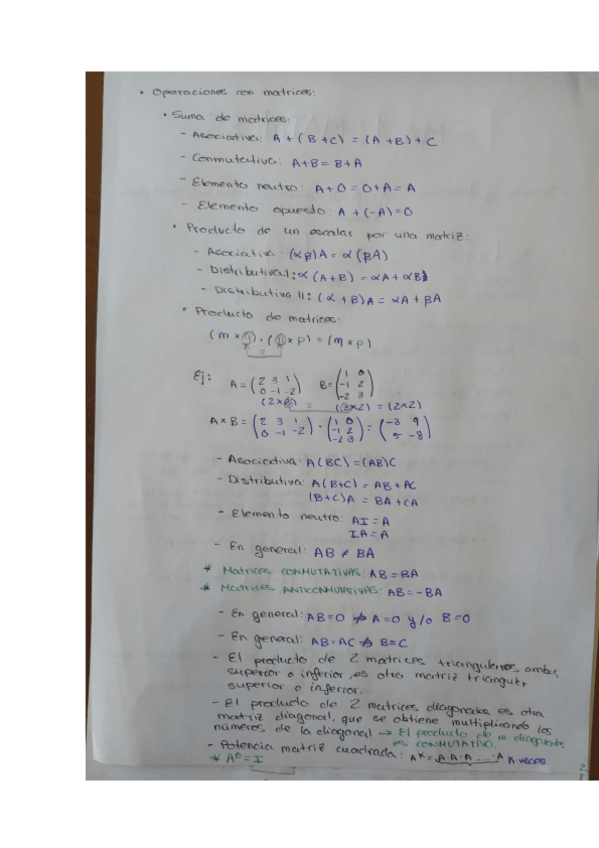 • Operaciones con matrices:
• Suma de matrices:
- Asociativa: A + (B + C) = (A + B) + C
- Conmutativa: A + B = B + A
- Elemento neutro: A + 0 = 0 + A = A
- Elemento opuesto: A + (-A) = 0
• Producto de un escalar por una matriz:
- Asociativa: (αβ)A = α(βA)
- Distributiva I: α(A + B) = αA + αB
- Distributiva II: (α + β)A = αA + βA
• Producto de matrices:
(m × n) · (n × p) = (m × p)
=
Ej: A = (2 3 1 / 0 -1 -2) B = (1 0 / -1 2 / -2 3)
(2×3) = (3×2) = (2×2)
A × B = (2 3 1 / 0 -1 -2) · (1 0 / -1 2 / -2 3) = (-3 9 / 5 -8)
- Asociativa: A(BC) = (AB)C
- Distributiva: A(B+C) = AB + AC
(B+C)A = BA + CA
- Elemento neutro: AI = A
IA = A
- En general: AB ≠ BA
* Matrices CONMUTATIVAS: AB = BA
* Matrices ANTICONMUTATIVAS: AB = -BA
- En general: AB = 0 ⇏ A = 0 y/o B = 0
- En general: AB = AC ⇏ B = C
- El producto de 2 matrices triangulares, ambas
superior o inferior, es otra matriz triangular
superior o inferior.
- El producto de 2 matrices diagonales es otra
matriz diagonal, que se obtiene multiplicando los
números de la diagonal → El producto de m diagonales
es CONMUTATIVO.
- Potencia matriz cuadrada: Aᴷ = A·A·A ... ·A K veces
* A⁰ = I
2